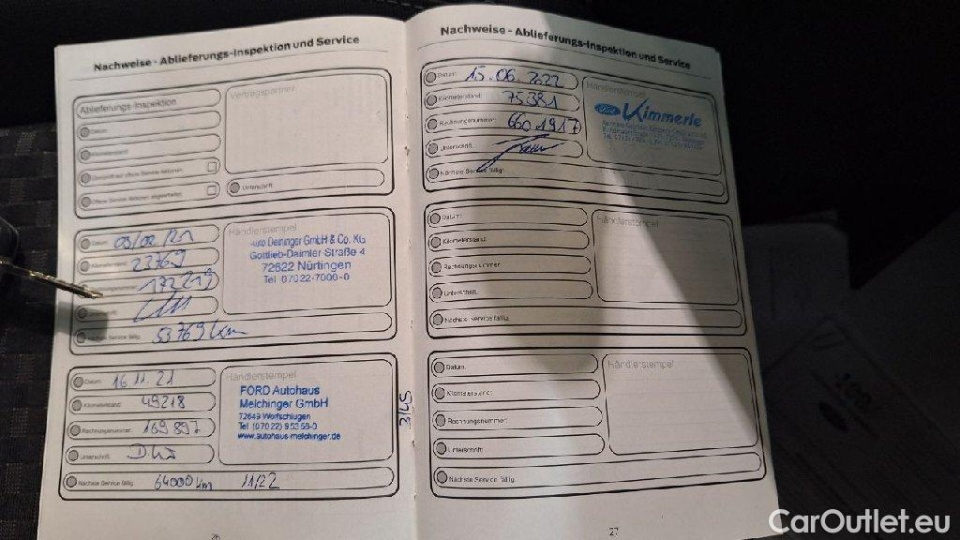 Nachweise - Ablieferungs-Inspektion und Service
Ablieferungs-Inspektion
Datum:
Kilometerstand:
Unterschrift:
Vertragspartner
Datum: 09/02/21
Kilometerstand: 23769
172219
Unterschrift:
Nächste Service fällig: 53769 km
Händlerstempel
Auto Deininger GmbH & Co. KG
Gottlieb-Daimler-Straße 4
72622 Nürtingen
Tel. 07022-7000-0
Datum: 16.11.21
Kilometerstand: 49218
Rechnungsnummer: 169897
Unterschrift:
Nächste Service fällig: 64000 km 11/22
Händlerstempel
FORD Autohaus
Melchinger GmbH
72649 Wolfschlugen
Tel. (07022) 95368-0
www.autohaus-melchinger.de
26
Nachweise - Ablieferungs-Inspektion und Service
Datum: 15.06.2022
Kilometerstand: 75381
Rechnungsnummer: 6601917
Unterschrift:
Nächste Service fällig:
Händlerstempel
Ford Kimmerle
Datum:
Kilometerstand:
Rechnungsnummer:
Unterschrift:
Nächste Service fällig:
Händlerstempel
Datum:
Kilometerstand:
Rechnungsnummer:
Unterschrift:
Nächste Service fällig:
Händlerstempel
27
CarOutlet.eu